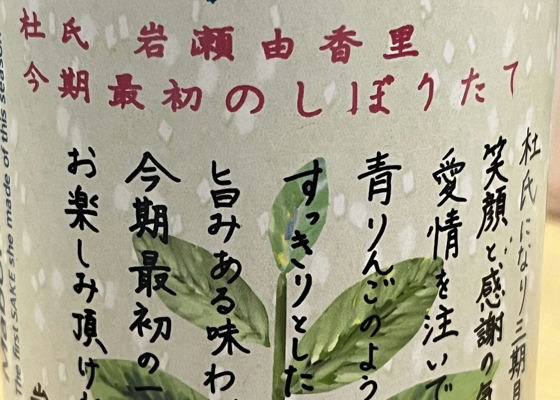 杜氏 岩瀬由香里
今期最初のしぼりたて
杜氏になり三期目
笑顔と感謝の気
愛情を注いで
青りんごのよう
すっきりとした
旨みある味わ
今期最初の一
お楽しみ頂け
The first SAKE she made of this season